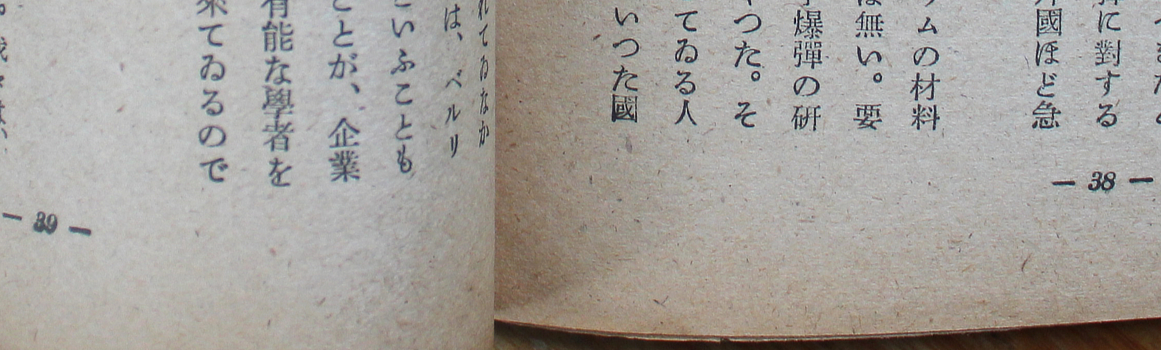 に對する
國ほど急
ムの材料
無い。要
爆彈の硏
つた。そ
てゐる人
いつた國
— 38 —
れてゐなか
は、ベルリ
いふことも
とが、企業
有能な學者を
來てゐるので
— 39 —